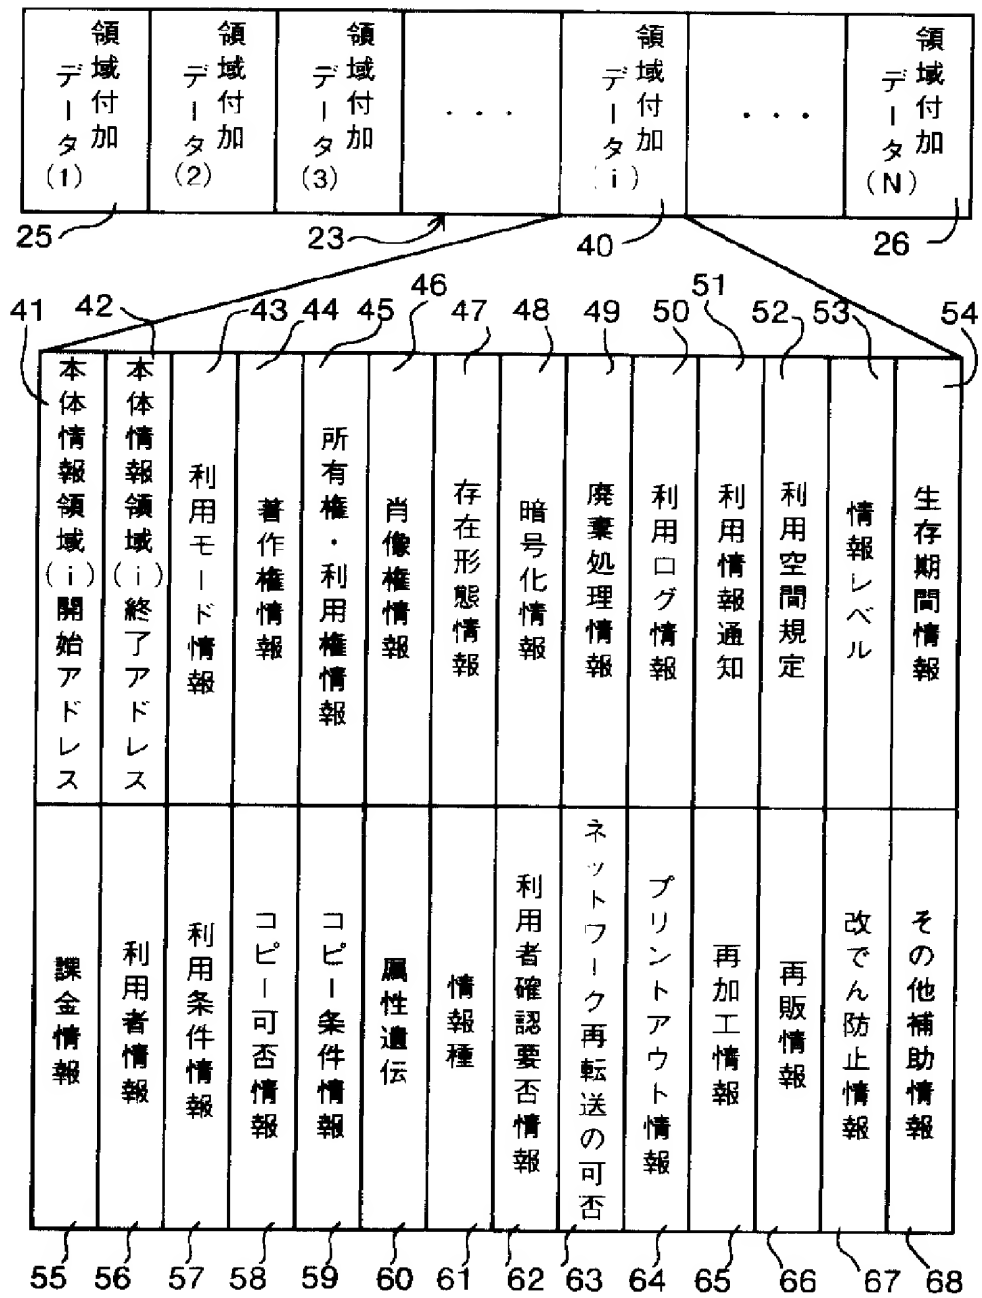 領域付加
データ
(1)
領域付加
データ
(2)
領域付加
データ
(3)
・・・
領域付加
データ
(i)
・・・
領域付加
データ
(N)
25
23
40
26
41
42
43
44
45
46
47
48
49
50
51
52
53
54
本体情報領域(i)開始アドレス
本体情報領域(i)終了アドレス
利用モード情報
著作権情報
所有権・利用権情報
肖像権情報
存在形態情報
暗号化情報
廃棄処理情報
利用ログ情報
利用情報通知
利用空間規定
情報レベル
生存期間情報
課金情報
利用者情報
利用条件情報
コピー可否情報
コピー条件情報
属性遺伝
情報種
利用者確認要否情報
ネットワーク再転送の可否
プリントアウト情報
再加工情報
再販情報
改でん防止情報
その他補助情報
55
56
57
58
59
60
61
62
63
64
65
66
67
68